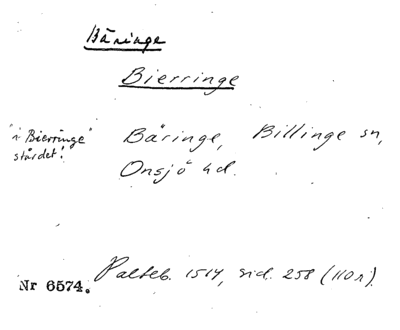 Bäringe
Bierringe
"i Bierringe" Bäringe, Billinge sn,
står det! Onsjö hd.
Palteb. 1514, sid. 258 (110r).
Nr 6574.